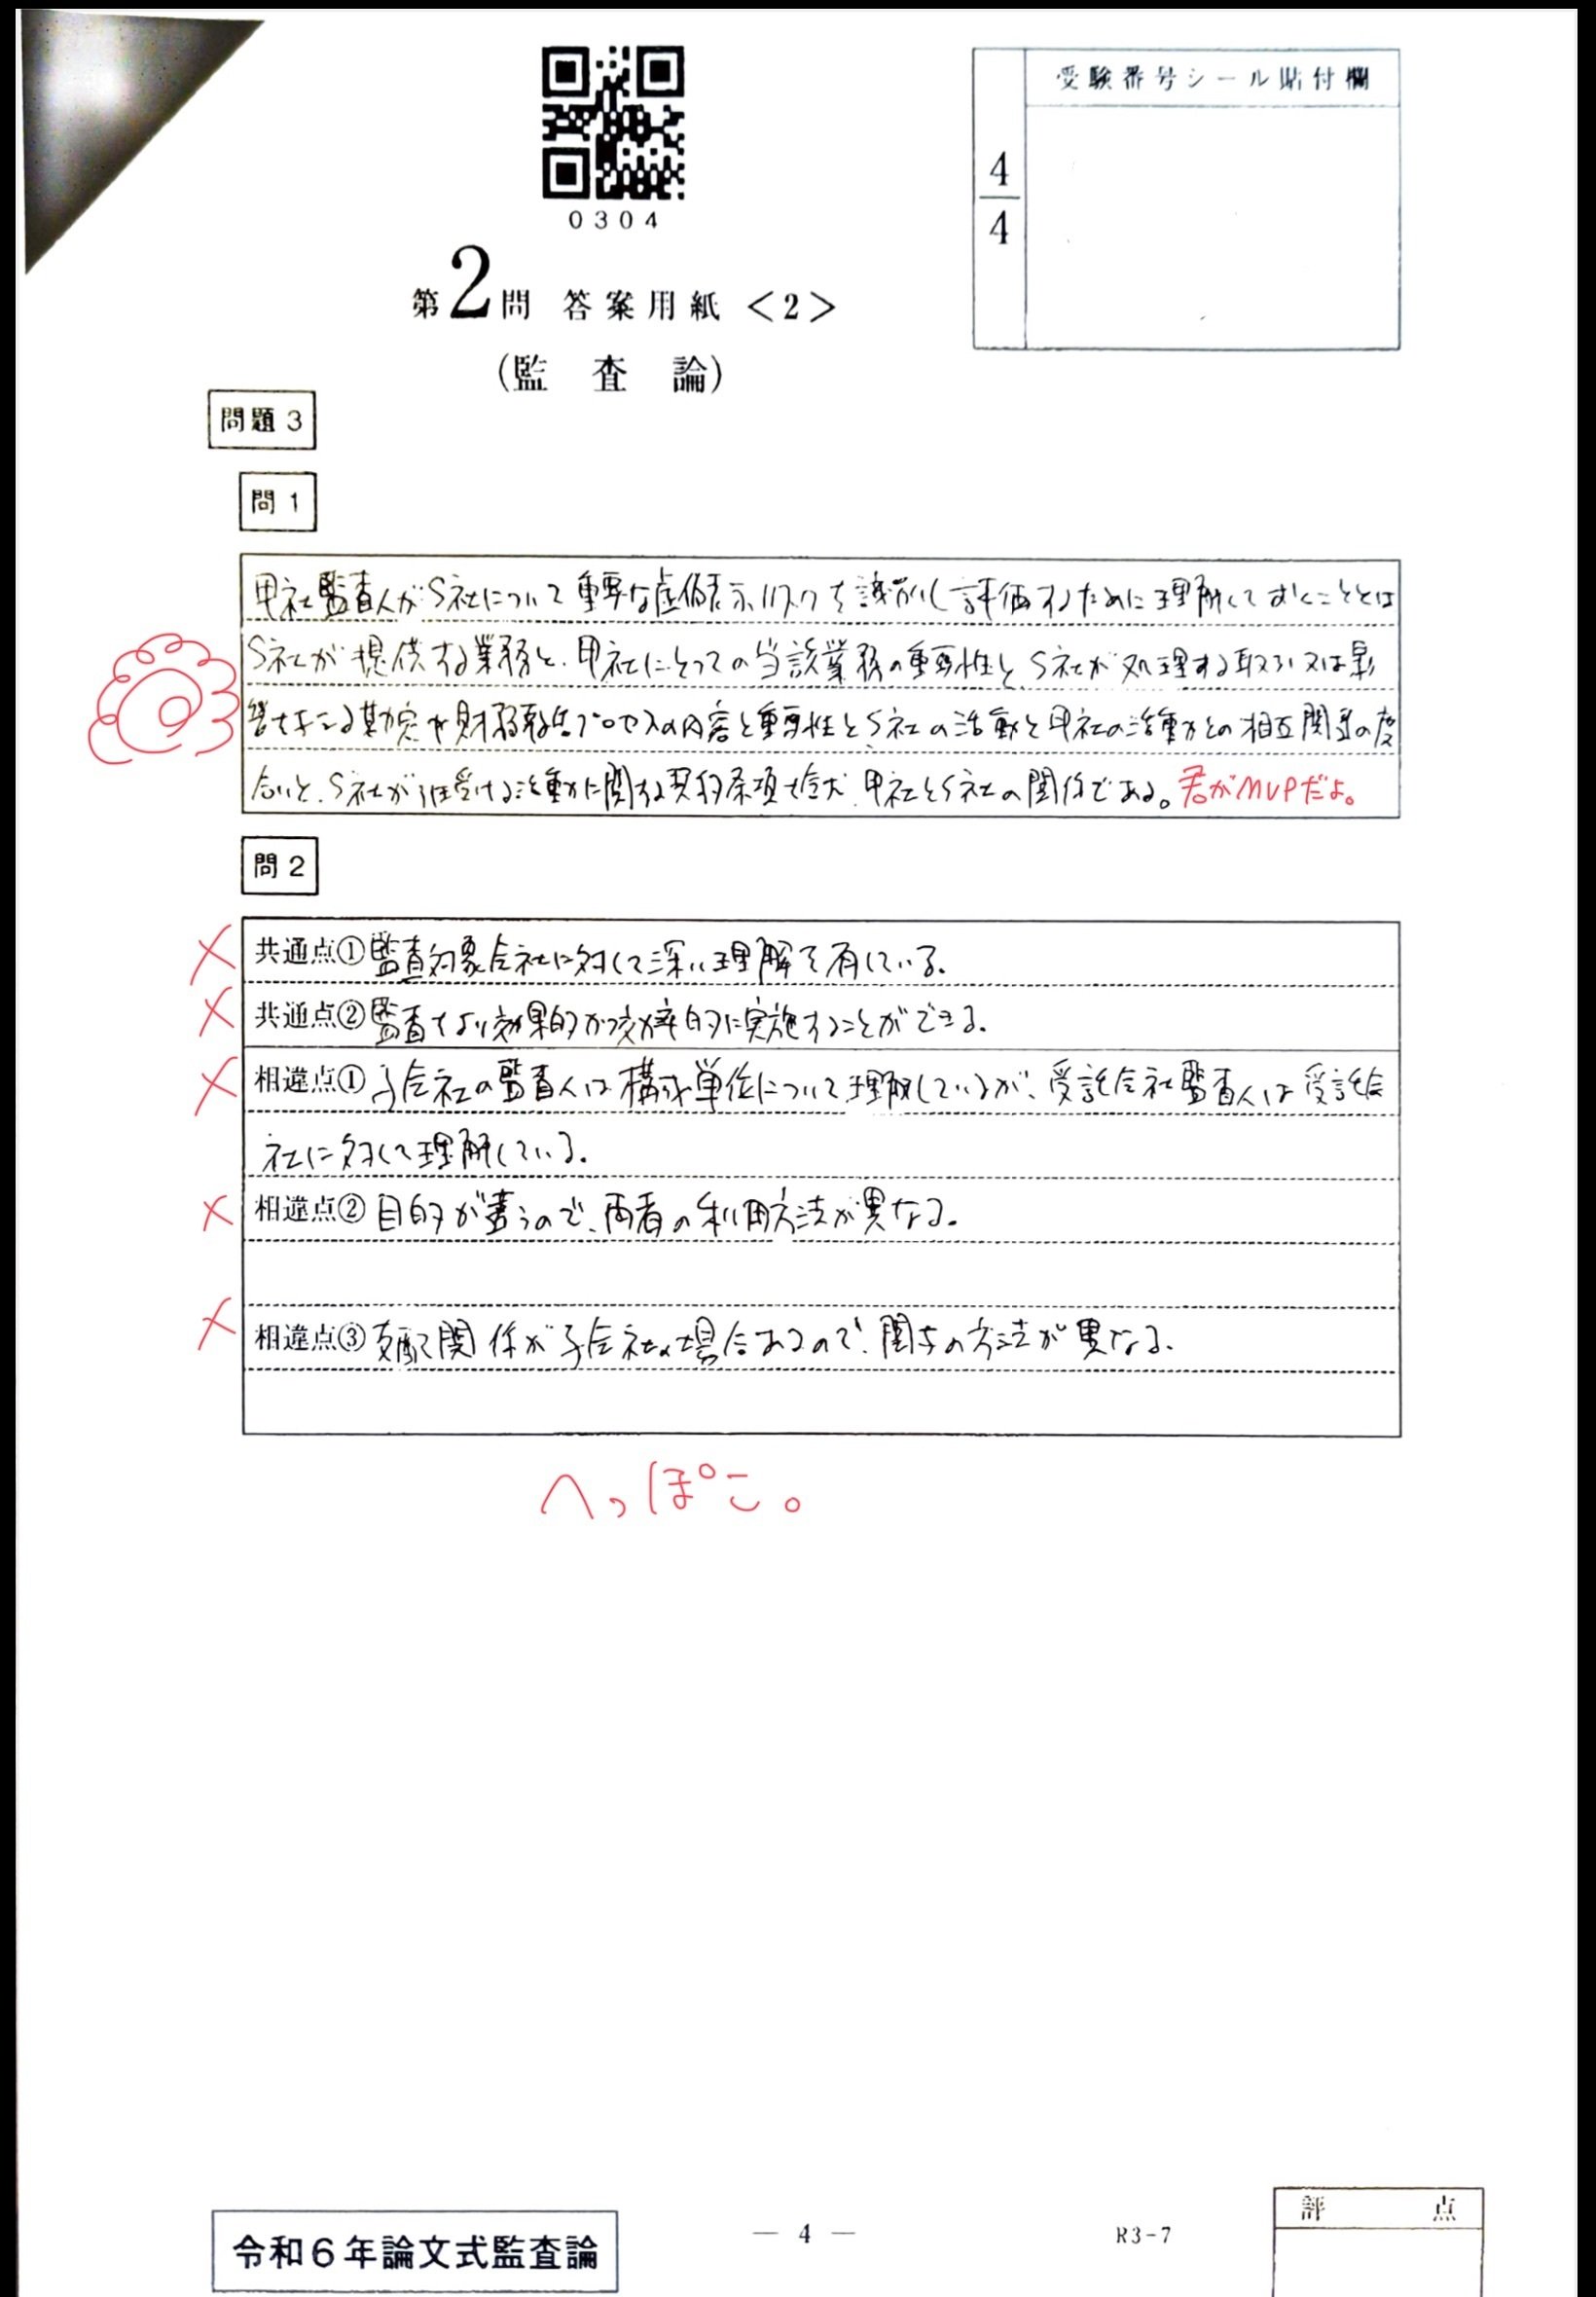 受験番号シール貼付欄
4
4
0304
第2問 答案用紙 <2>
(監査論)
問題3
問1
甲社監査人がS社について重要な虚偽表示リスクを識別し評価するために理解しておくこととは
S社が提供する業務と、甲社にとっての当該業務の重要性と、S社が処理する取引又は影
響を与える勘定や財務報告プロセスの内容と重要性とS社の活動と甲社の活動との相互関連の度
合いと、S社が引受ける活動に関する契約条項を含む、甲社とS社の関係である。君がMVPだよ。
問2
共通点①監査対象会社に対して深い理解を有している。
共通点②監査をより効果的かつ効率的に実施することができる。
相違点①子会社の監査人は構成単位について理解しているが、受託会社監査人は受託会
社に対して理解している。
相違点②目的が違うので、両者の利用方法が異なる。
相違点③支配関係が子会社の場合あるので、関与の方法が異なる。
へっぽこ。
令和6年論文式監査論
― 4 ―
R3-7
評点